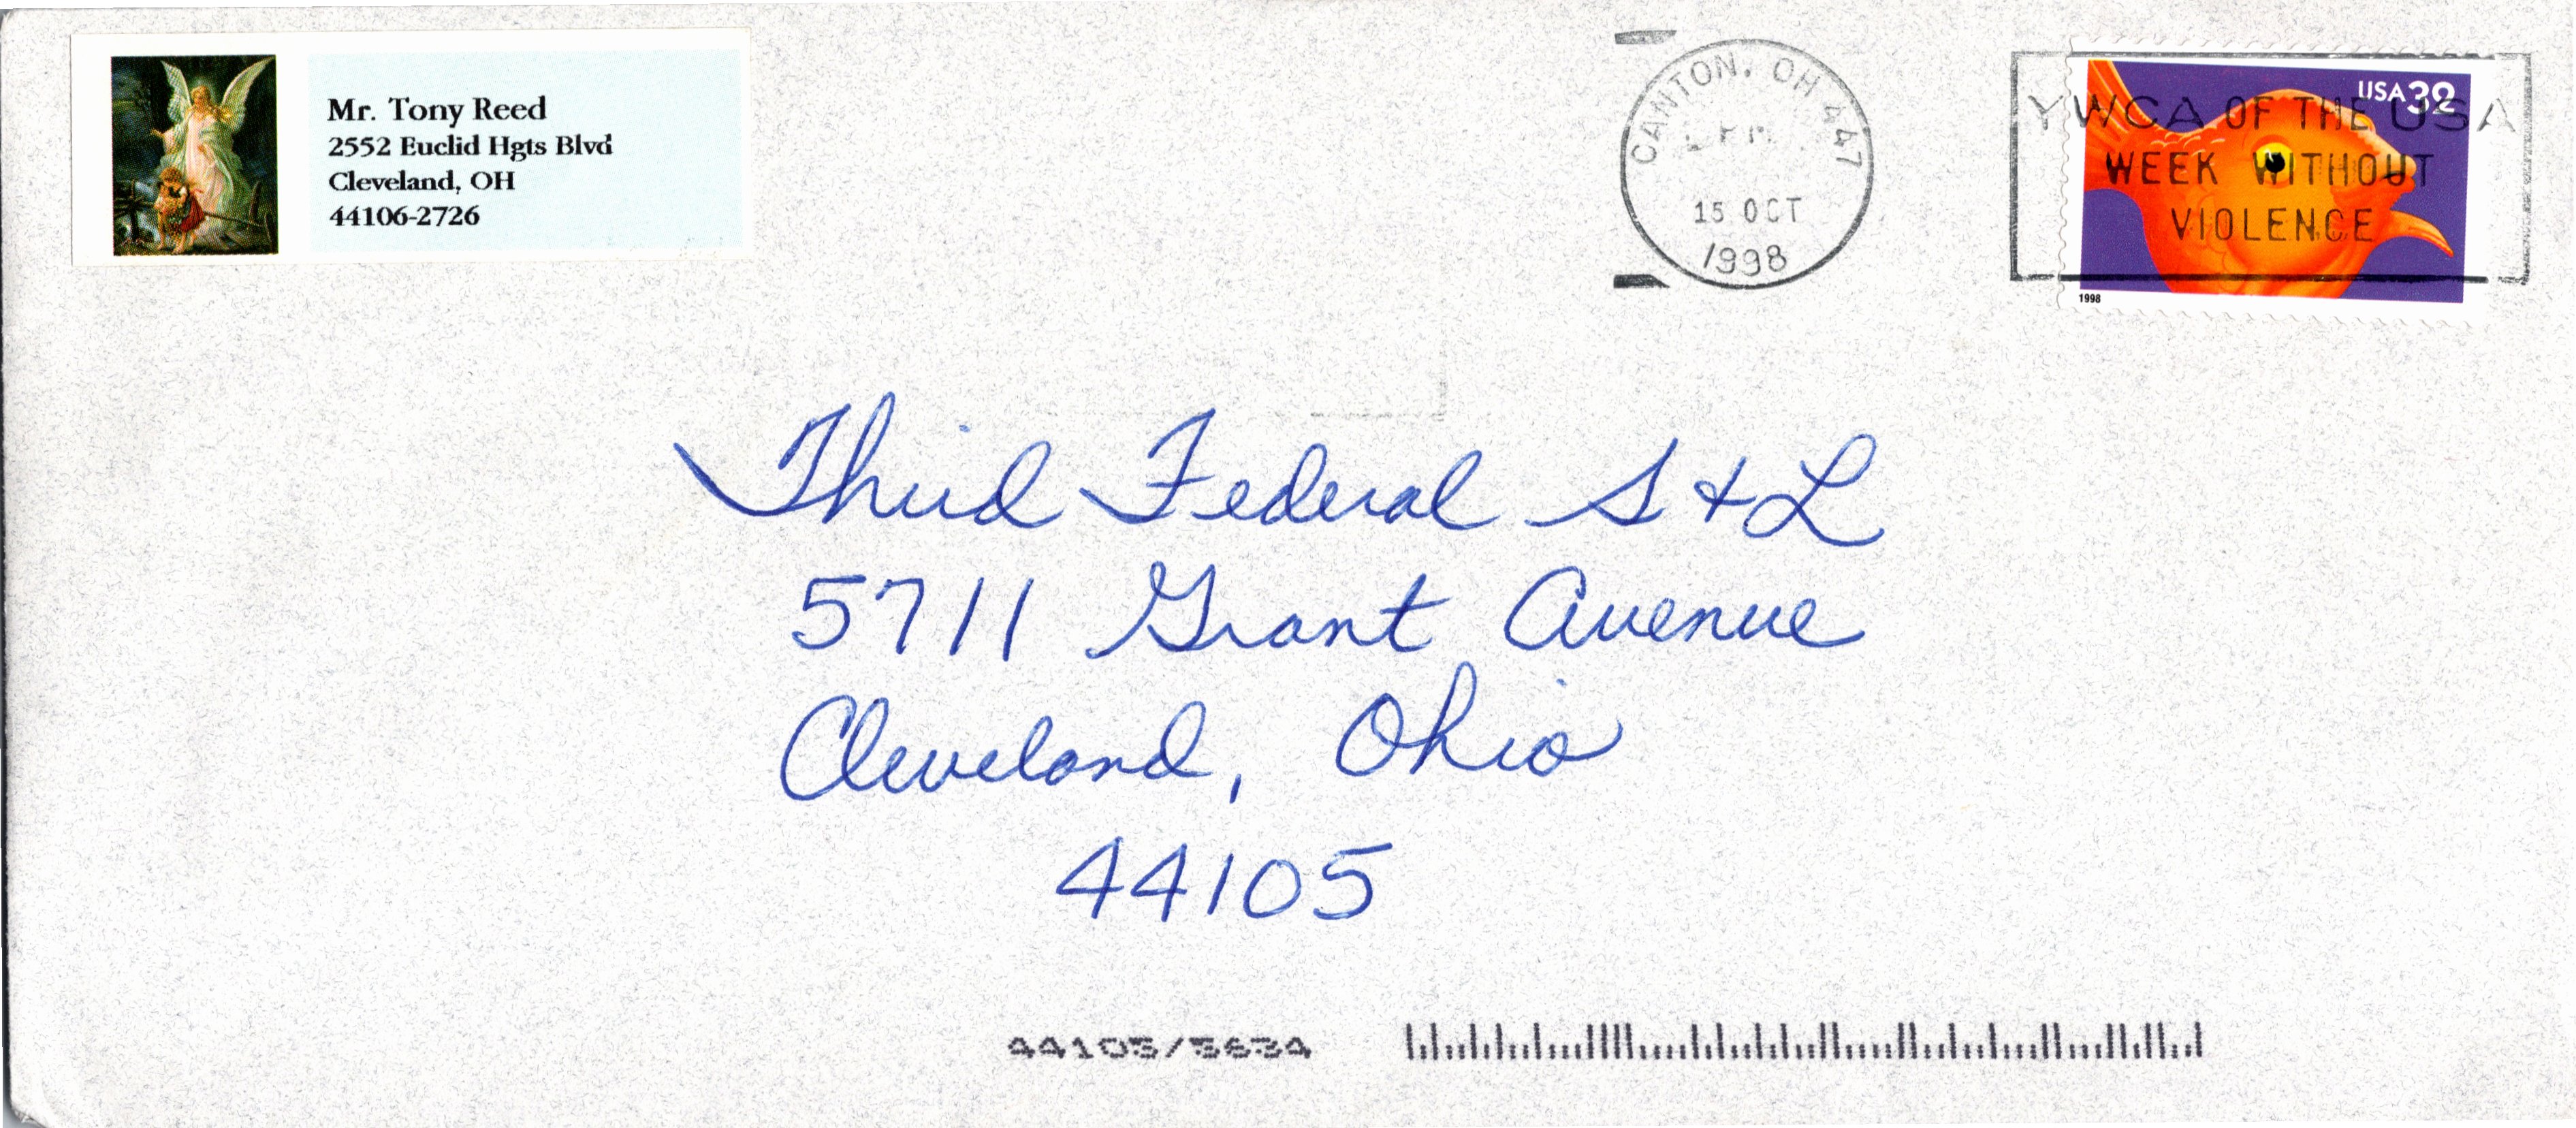 Mr. Tony Reed
2552 Euclid Hgts Blvd
Cleveland, OH
44106-2726
CANTON, OH 447
PM
15 OCT
1998
USA 32
YWCA OF THE USA
WEEK WITHOUT
VIOLENCE
1998
Third Federal S + L
5711 Grant Avenue
Cleveland, Ohio
44105
44105/3634